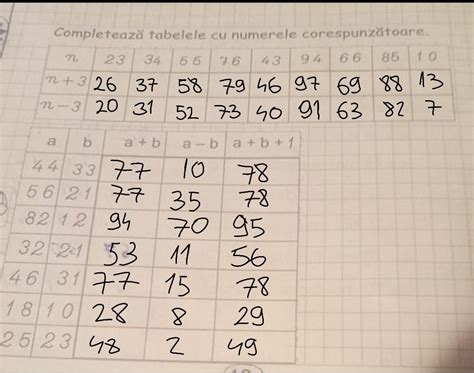 Completează tabelele cu numerele corespunzătoare.
n 23 34 55 76 43 94 66 85 10
n+3 26 37 58 79 46 97 69 88 13
n-3 20 31 52 73 40 91 63 82 7
a b a+b a-b a+b+1
44 33 77 10 78
56 21 77 35 78
82 12 94 70 95
32 21 53 11 56
46 31 77 15 78
18 10 28 8 29
25 23 48 2 49